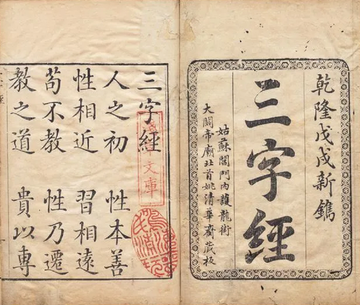 乾隆戊戌新鐫
三字經
姑蘇閶門內護龍街
大關帝廟北首姚清華齋藏板
三字經
人之初　性本善
性相近　習相遠
苟不教　性乃遷
教之道　貴以專
文庫